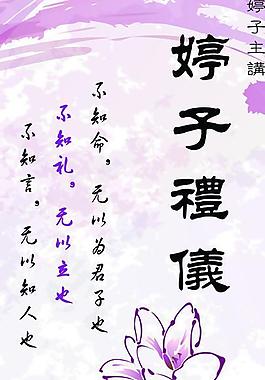 婷子主講
婷子禮儀
不知命，无以为君子也
不知礼，无以立也
不知言，无以知人也